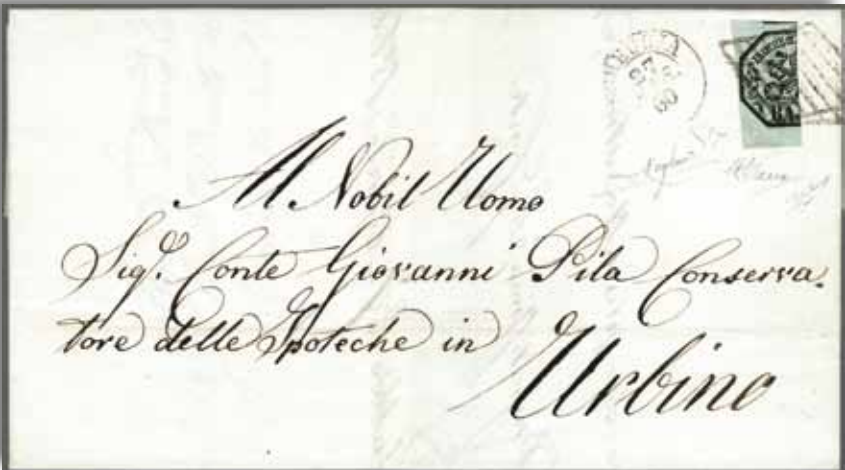 27
60
Al Nobil Uomo
Sigr. Conte Giovanni Pila Conserva-
tore delle Ipoteche in
Urbino